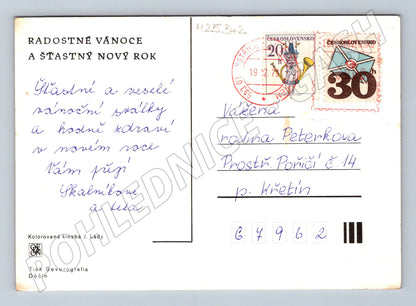 M215342
RADOSTNÉ VÁNOCE
A ŠŤASTNÝ NOVÝ ROK
Šťastné a veselé
vánoční svátky
a hodně zdraví
v novém roce
Vám přejí
Skalníkovi
a teta
Kolorovaná kresba J. Lady
Tisk Severografia
Děčín
ČESKOSLOVENSKO
20h
ČESKOSLOVENSKO
30h
Vážená
rodina Peterkova
Prostř. Poříčí č 14
p. Křetín
67962
POHLEDNICE